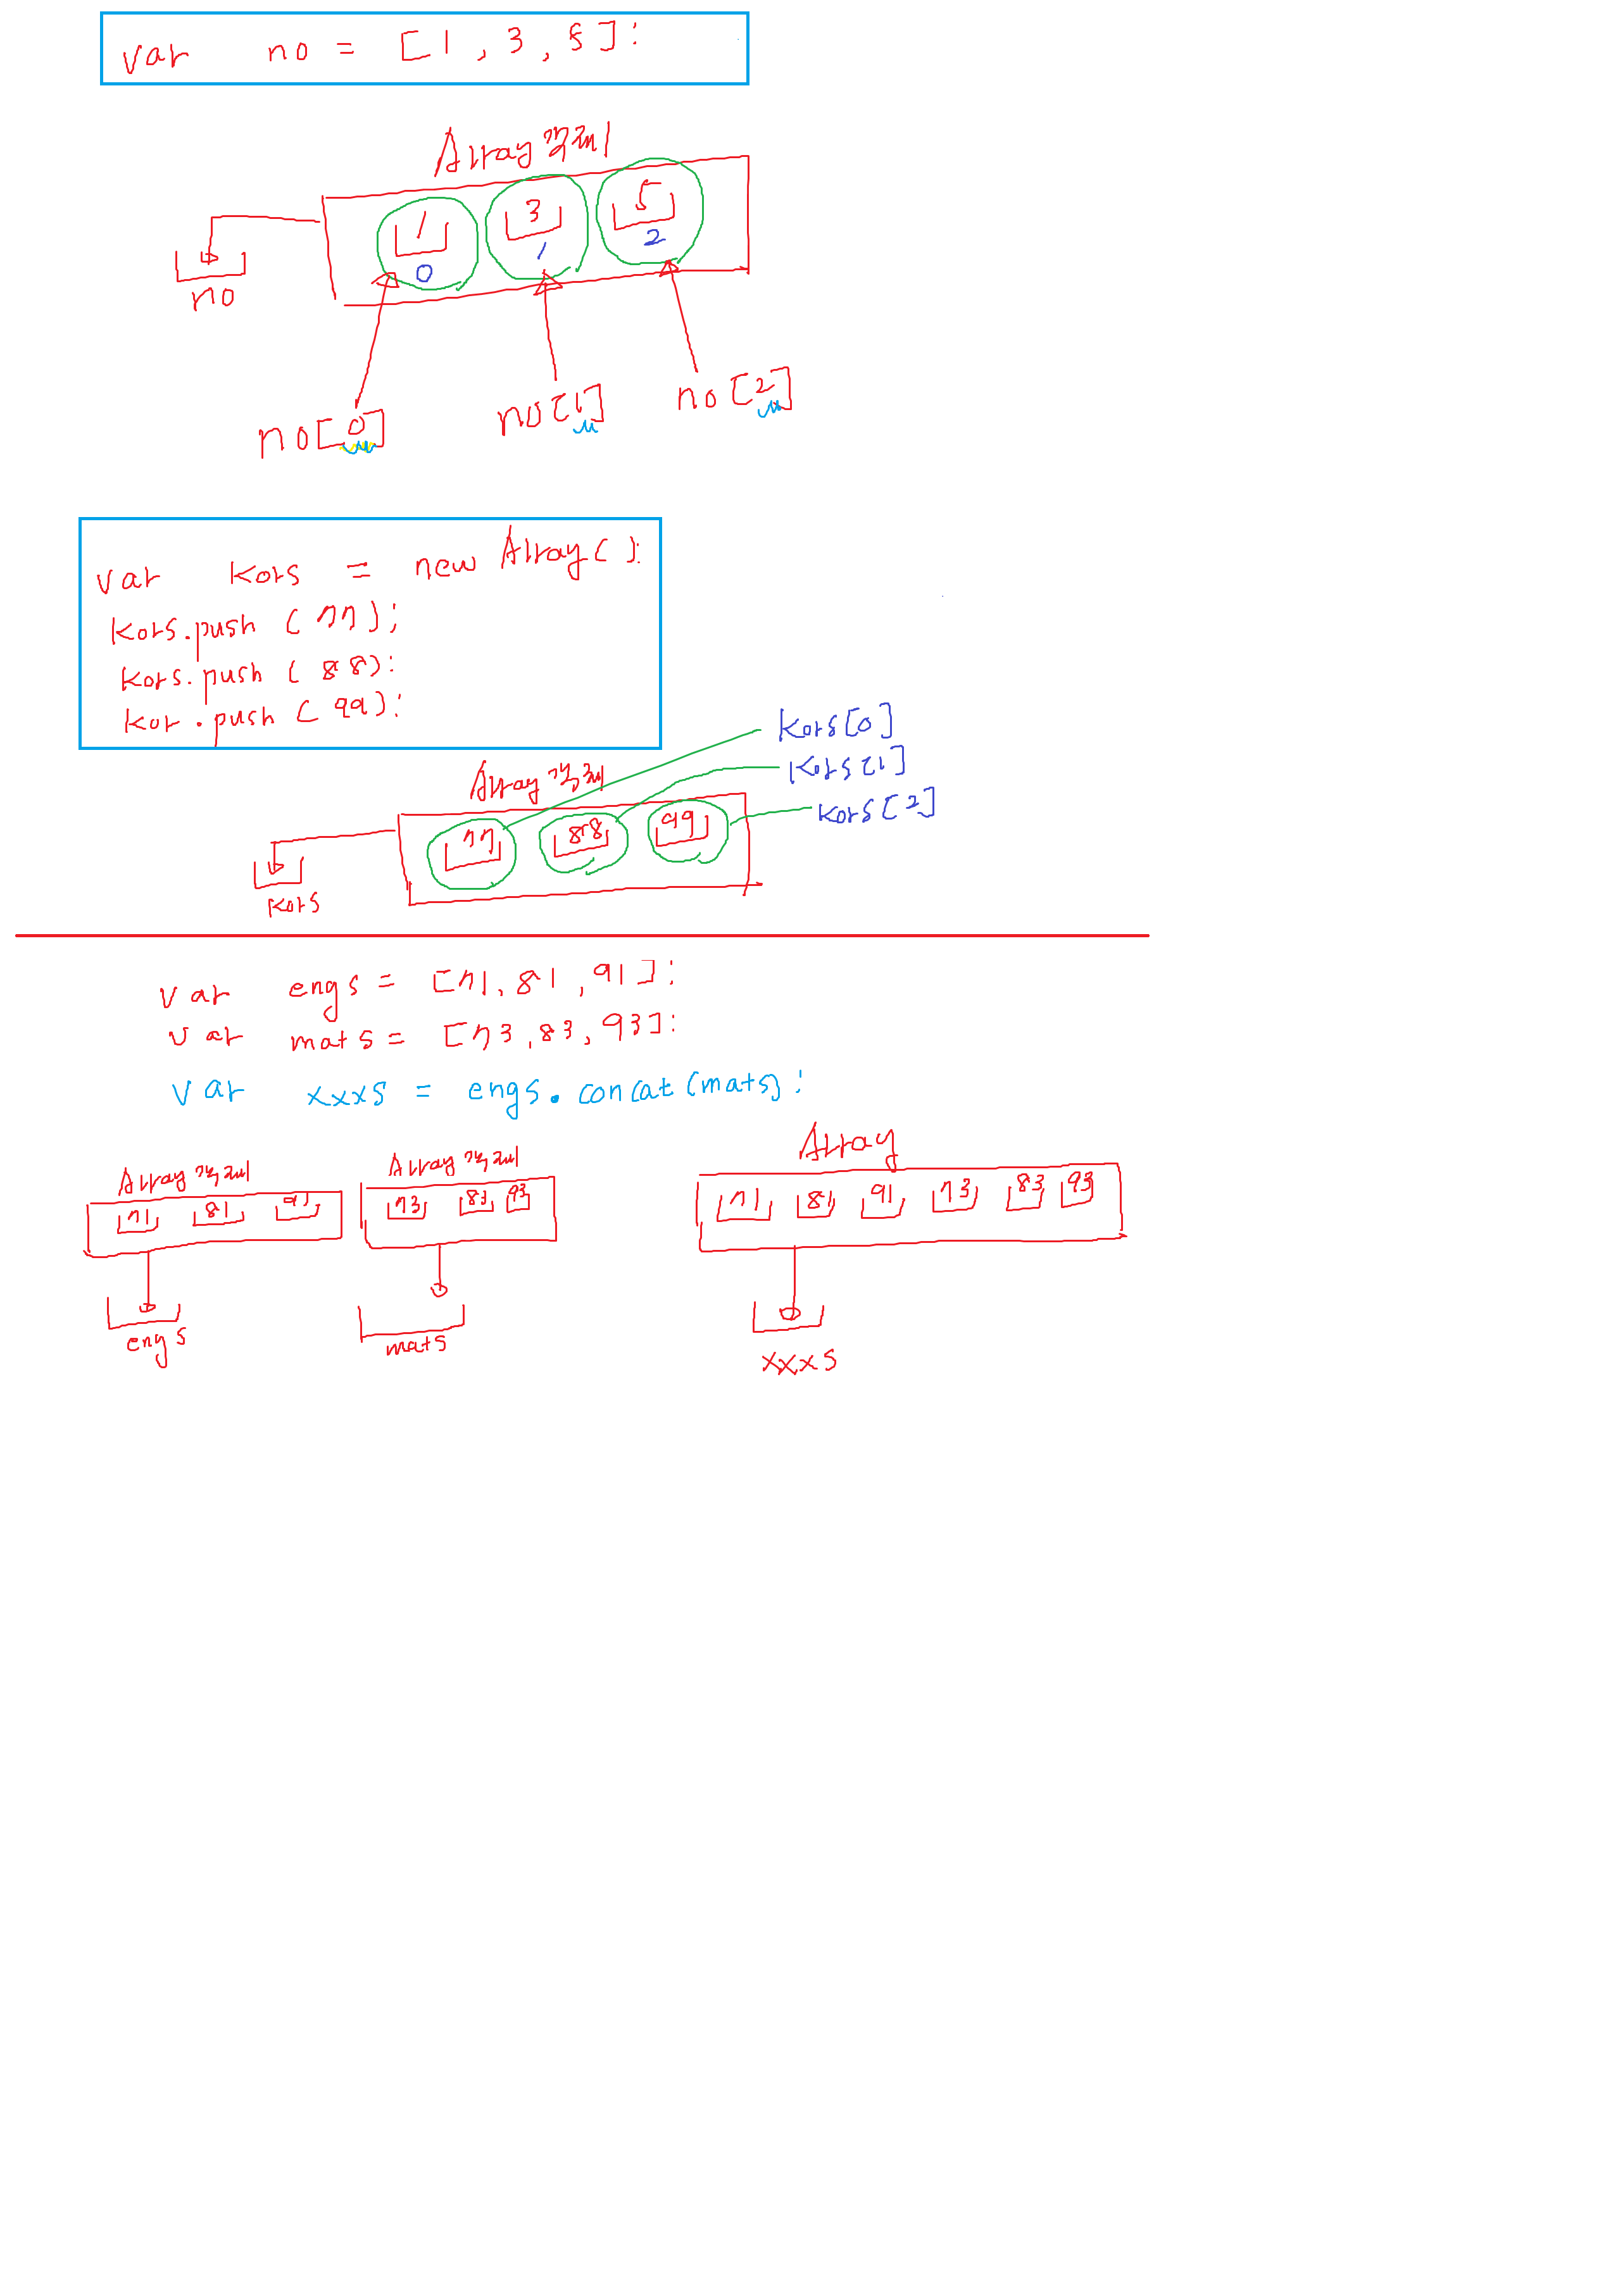 var no = [1, 3, 5];
Array 객체
1 3 5
0 1 2
no
no[0] no[1] no[2]
var kors = new Array();
kors.push(77);
kors.push(88);
kor.push(99);
kors[0]
kors[1]
kors[2]
Array 객체
77 88 99
kors
var engs = [71, 81, 91];
var mats = [73, 83, 93];
var xxxs = engs.concat(mats);
Array 객체 Array 객체 Array
71 81 91 73 83 93 71 81 91 73 83 93
engs mats xxxs